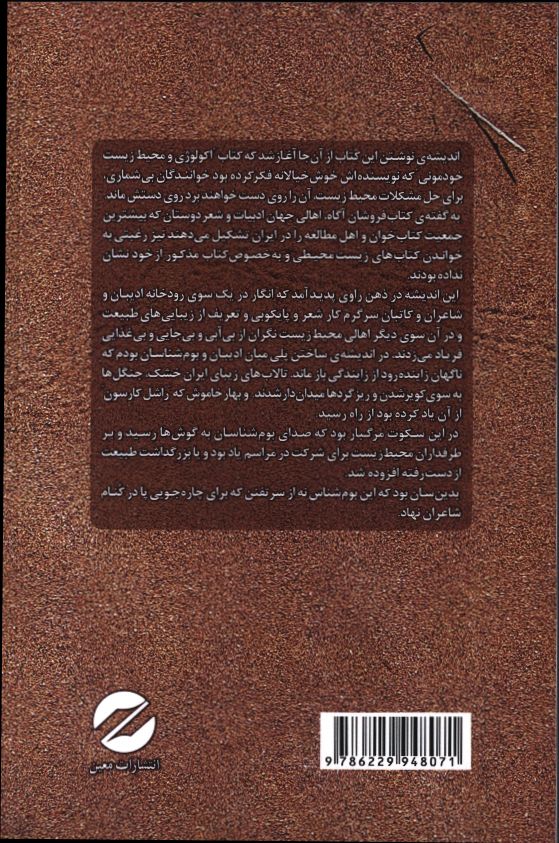 اندیشه‌ی نوشتن این کتاب از آن جا آغاز شد که کتاب اکولوژی و محیط زیست
خودمونی که نویسنده‌اش خوش خیالانه فکر کرده بود خوانندگان بی‌شماری،
برای حل مشکلات محیط زیست، آن را روی دست خواهند برد روی دستش ماند.
به گفته‌ی کتاب‌فروشان آگاه، اهالی جهان ادبیات و شعر دوستان که بیشترین
جمعیت کتاب‌خوان و اهل مطالعه را در ایران تشکیل می‌دهند نیز رغبتی به
خواندن کتاب‌های زیست محیطی و به‌خصوص کتاب مذکور از خود نشان
نداده بودند.
این اندیشه در ذهن راوی پدید آمد که انگار در یک سوی رودخانه ادیبان و
شاعران و کاتبان سرگرم کار شعر و پایکوبی و تعریف از زیبایی‌های طبیعت
و در آن سوی دیگر اهالی محیط زیست نگران از بی‌آبی و بی‌جایی و بی‌غذایی
فریاد می‌زدند. در اندیشه‌ی ساختن پلی میان ادیبان و بوم‌شناسان بودم که
ناگهان زاینده رود از زایندگی باز ماند. تالاب‌های زیبای ایران خشک، جنگل‌ها
به سوی کویر شدن و ریزگردها میدان‌دار شدند. و بهار خاموش که راشل کارسون
از آن یاد کرده بود از راه رسید.
در این سکوت مرگبار بود که صدای بوم‌شناسان به گوش‌ها رسید و بر
طرفداران محیط زیست برای شرکت در مراسم یاد بود و یا بزرگداشت طبیعت
از دست‌رفته افزوده شد.
بدین‌سان بود که این بوم‌شناس نه از سر تفنن که برای چاره‌جویی پا در کنام
شاعران نهاد.
انتشارات معین
9 786229 948071